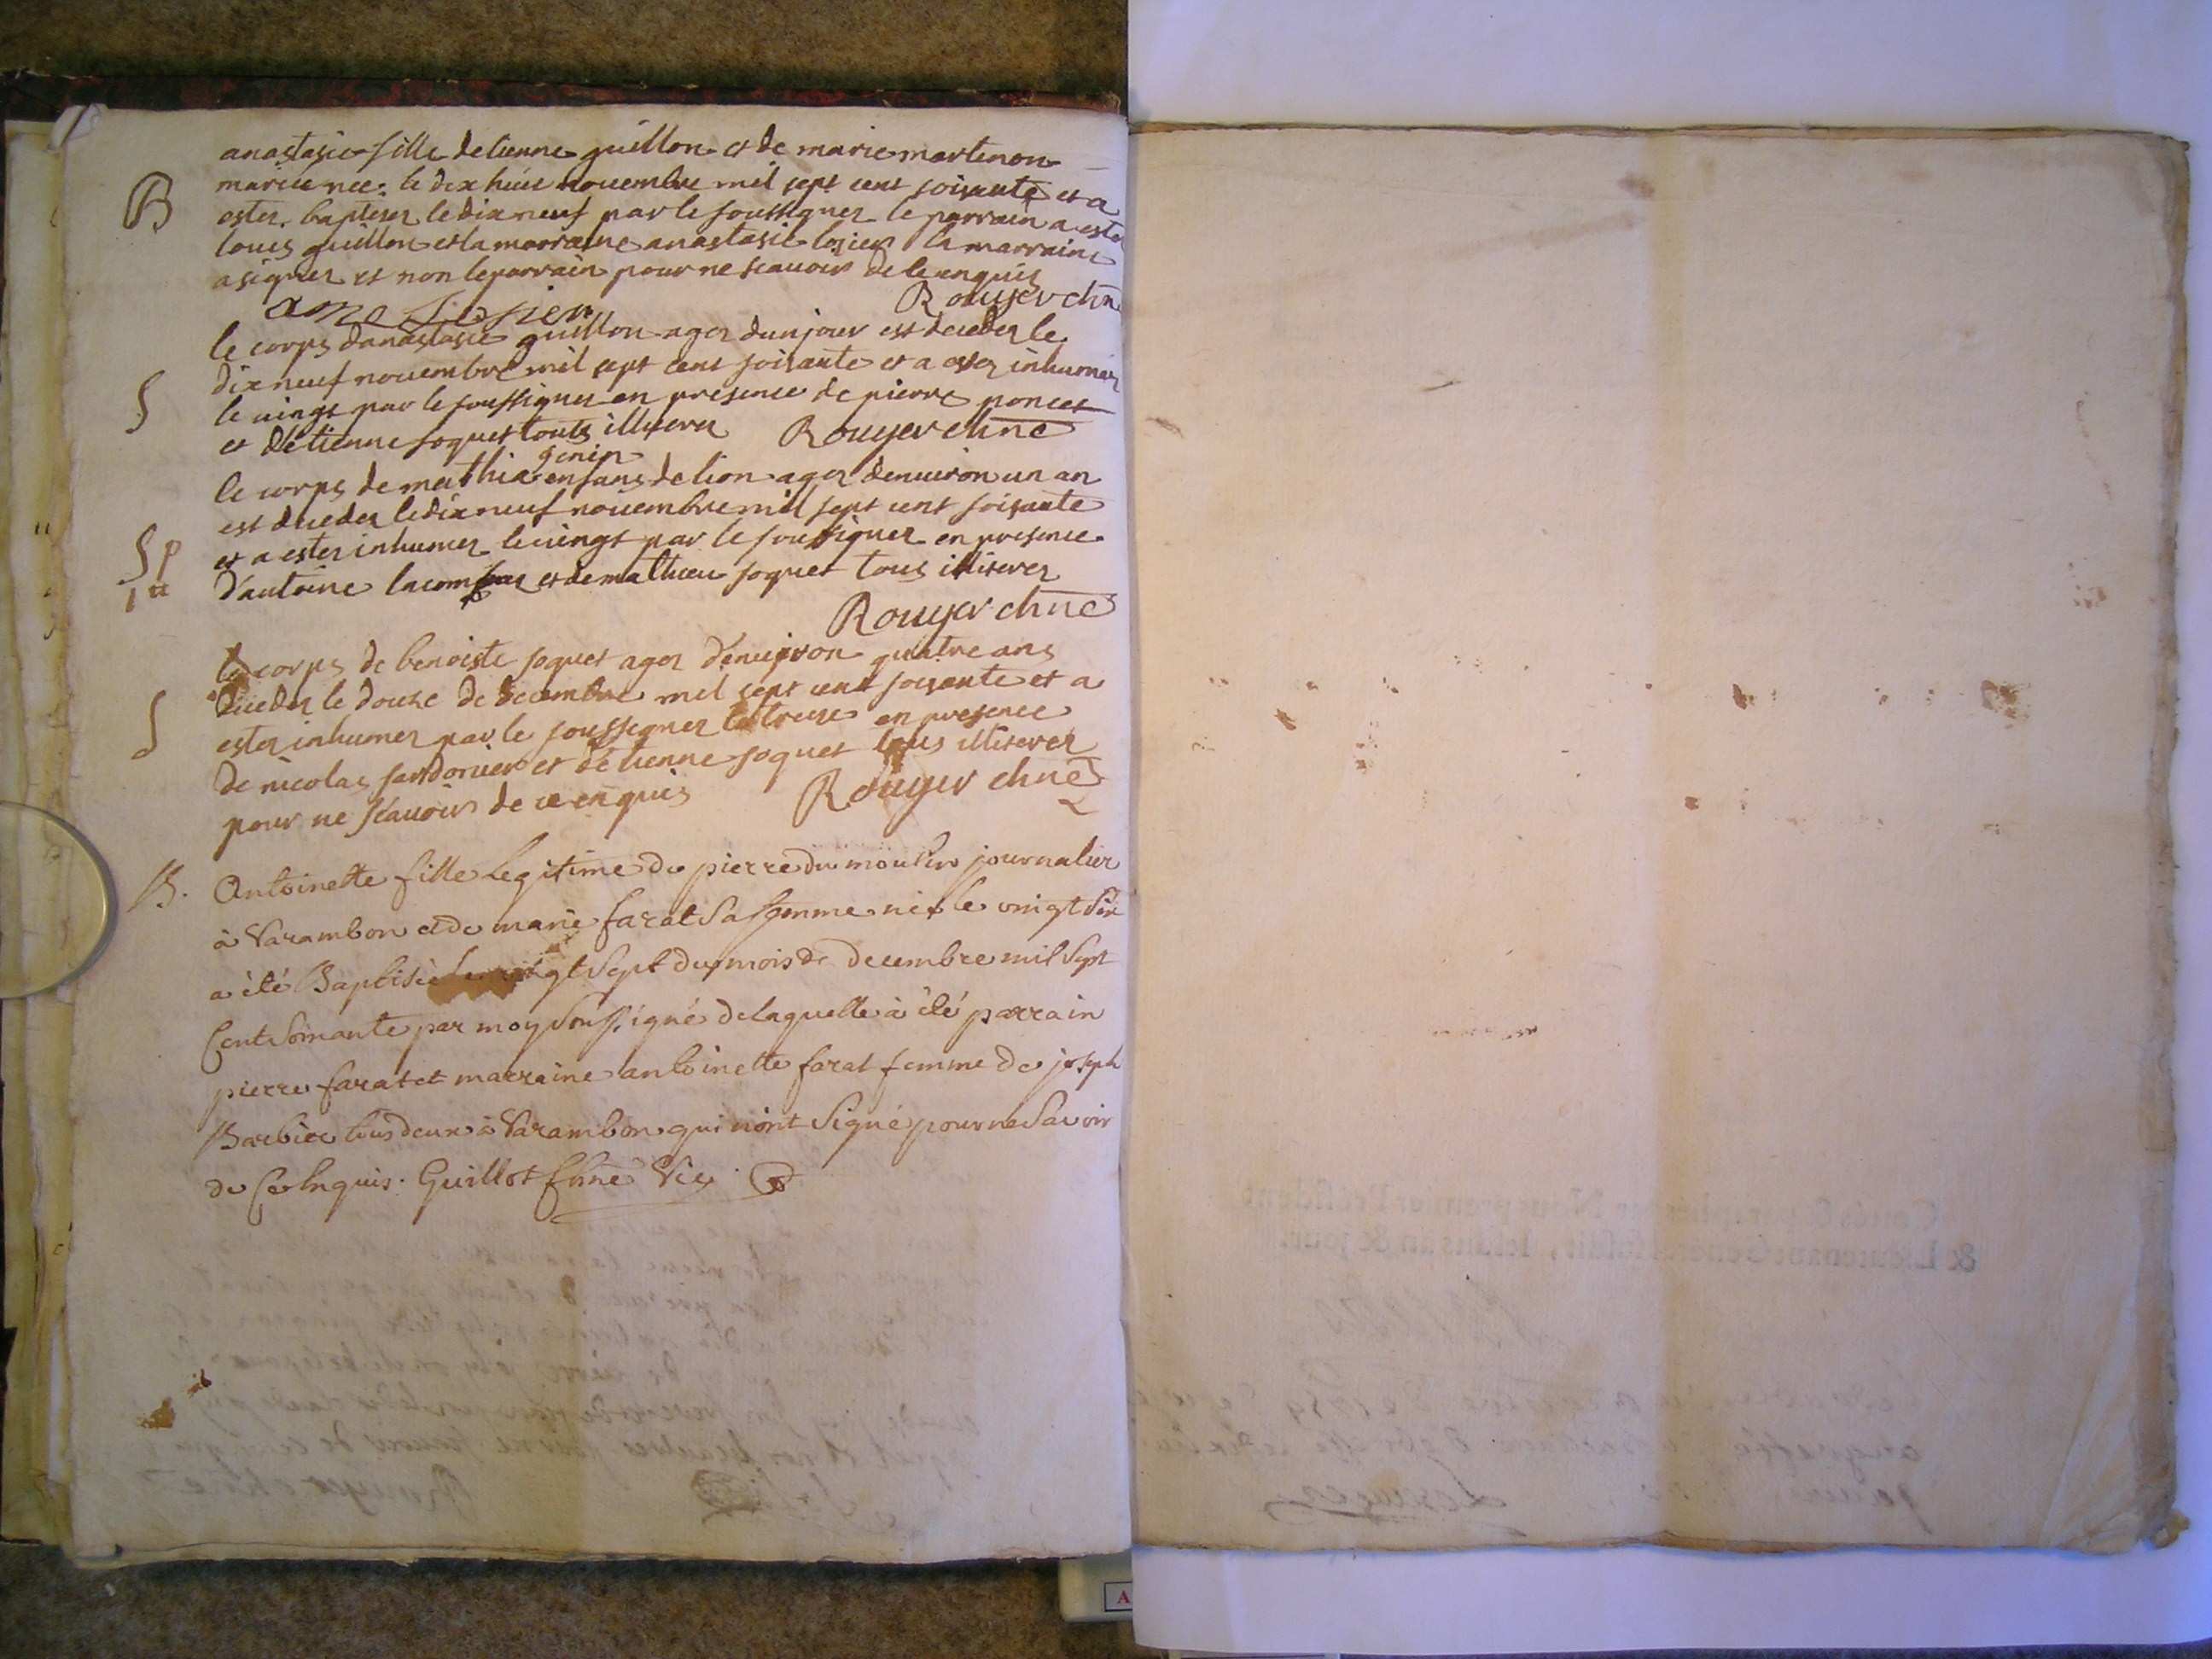 anastasie fille detienne guillon et de marie martenon
mariée nee le dix huit nouembre mil sept cent soisante et a
B
ester baptiser le dix neuf par le soussigner le parrain a ester
louis guillon et la marraine anastasie losier la marraine
a signer et non le parrain pour ne scauoir de le enquis
Rouyer chne
le corps danastasie guillon ager dun jour est deceder le
dix neuf nouembre mil sept cent soisante et a ester inhumer
S
le uingt par le soussigner en presence de pierre poncet
et détienne soquet touts illiterer Rouyer chne
genin
le corps de mathia enfans de lion ager denuiron un an
est deceder le dix neuf nouembre mil sept cent soisante
S p
et a ester inhumer le uingt par le soussigner en presence
d'antoine et de mathieu soquet tous illiterer
Rouyer chne
le corps de benoiste soquet ager d'enuiron quatre ans
deceder le douze de decembre mil sept cent soisante et a
S
ester inhumer par le soussigner le treize en presence
de nicolas et détienne soquet tous illiterer
pour ne scauoir de ce enquis Rouyer chne
B. Antoinette fille Legitime de pierre du moulin journalier
à Varambon et de marie farat Sa femme neé le vingt Six
a été Baptisée Le vingt Sept du mois de decembre mil Sept
Cent Soixante par moy Soussigné de laquelle à été parrain
pierre farat et marraine antoinette farat femme de joseph
Barbier tous deux à Varambon qui n'ont Signé pour ne Savoir
de Ce Enquis. Guillot Chne Vic